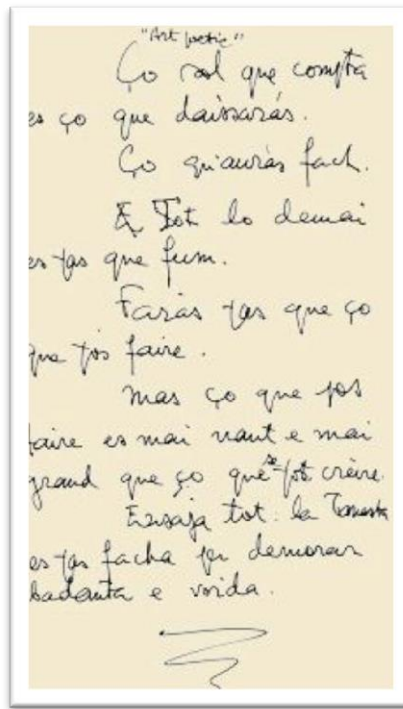 "Art poetic"
Ço sol que compta
es ço que daissaràs.
Ço qu'auràs fach.
Tot lo demai
es pas que fum.
Faràs pas que ço
que pòs faire.
mas ço que pòs
faire es mai naut e mai
grand que ço que se pòt crèire.
Ensaja tot: la
es pas facha per demorar
badanta e voida.